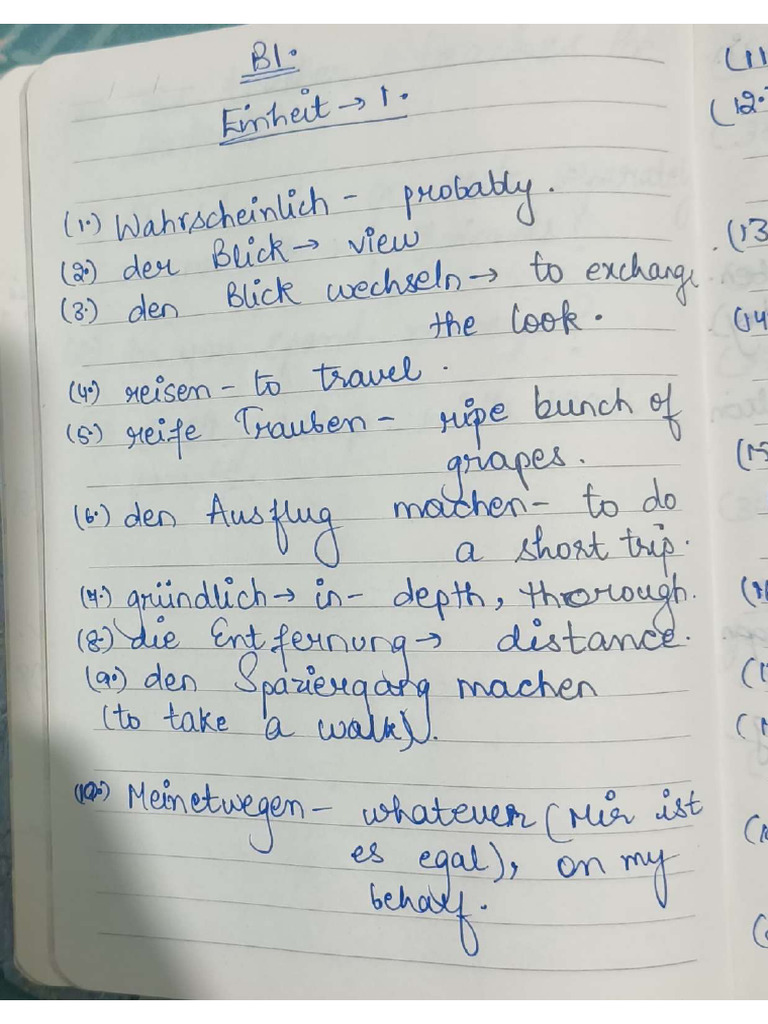 B1.
Einheit → 1.
(1.) Wahrscheinlich - probably.
(2.) der Blick → view
(3.) den Blick wechseln → to exchange
the look.
(4.) reisen - to travel.
(5.) reife Trauben - ripe bunch of
grapes.
(6.) den Ausflug machen - to do
a short trip.
(7.) gründlich → in-depth, thorough.
(8.) die Entfernung → distance.
(9.) den Spaziergang machen
(to take a walk).
(10.) Meinetwegen - whatever (Mir ist
es egal), on my
behalf.
(11
(12.
(13
(14